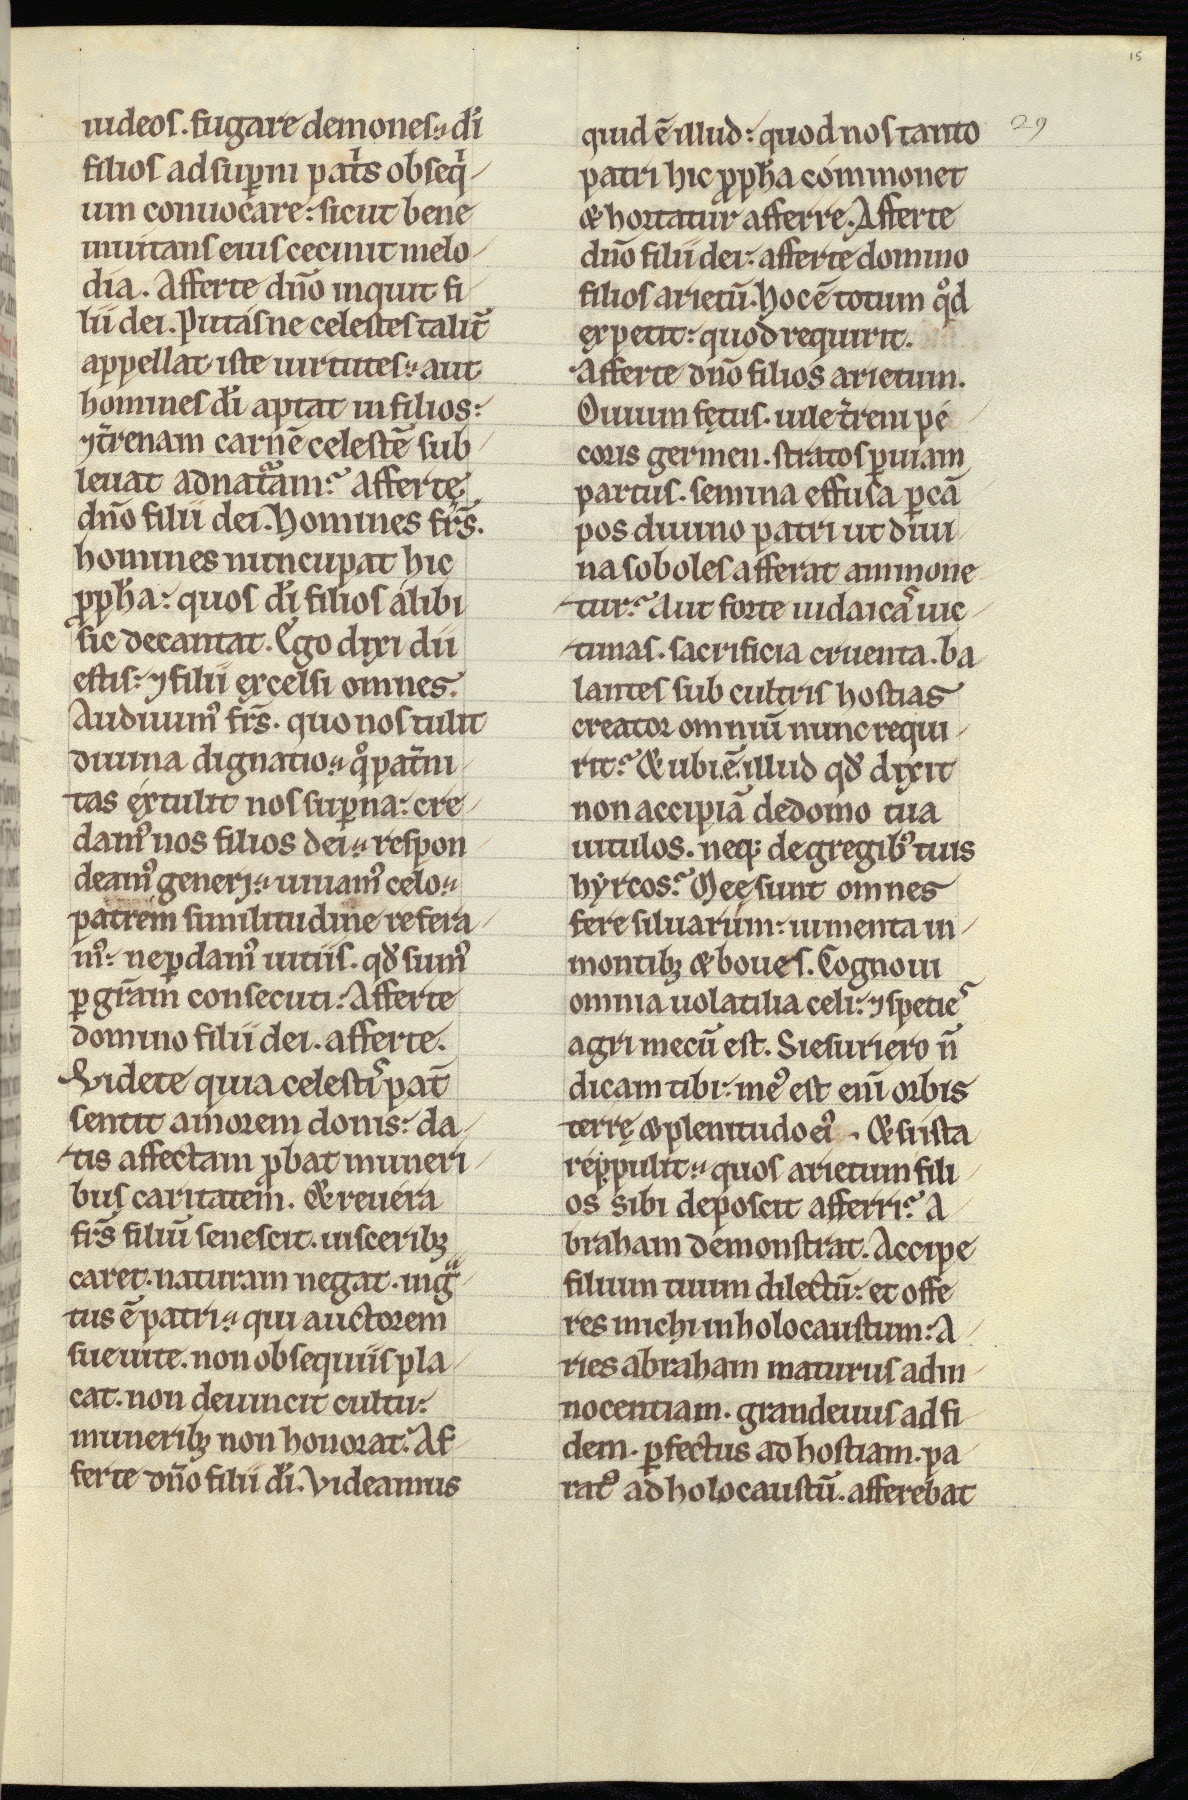 15
29
iudeos. fugare demones.,, dĩ
filios ad suꝑni pat̃s obseq̃
um conuocare: sicut bene
inuitans eius cecinit melo
dia. Afferte dño inquit fi
lii dei. Putasne celestes talit̃
appellat iste uirtutes.,, aut
homines dĩ aptat in filios:
⁊ t̃renam carnẽ celestẽ sub
leuat ad nat̃am? Afferte
dño filii dei. Homines frs̃.
homines nuncupat hic
ꝓpħa: quos dĩ filios alibi
sic decantat. Ego dixi dii
estis: ⁊ filii excelsi omnes.
Audiuimꝰ frs̃. quo nos tulit
diuina dignatio.,, qͦ pat̃ni
tas extulit nos suꝑna: cre
damꝰ nos filios dei.,, respon
deamꝰ generi.,, uiuamꝰ celo.,,
patrem similitudine refera
mꝰ: ne ꝑdamꝰ uitiis. qđ sumꝰ
ꝑ gr̃am consecuti: Afferte
domino filii dei. afferte.
Videte quia celestis pat̃
sentit amorem donis: da
tis affectam ꝓbat muneri
bus caritatem. & reuera
frs̃ filiũ senescit. uisceribꝫ
caret. naturam negat. ingᵃ
tus ẽ patri.,, qui auctorem
sue uite. non obsequiis pla
cat. non deuincit cultu:
muneribꝫ non honorat. Af
ferte dño filii dĩ. Videamus
quid ẽ illud: quod nos tanto
patri hic ꝓpħa commonet
& hortatur afferre. Afferte
dño filii dei: afferte domino
filios arietũ. Hoc ẽ totum qͦd
expetit: quod requirit.
Afferte dño filios arietum.
Ouium fętus. uile t̃reni pe
coris germen. stratos ꝑ uiam
partus. semina effusa ꝑ cã
pos diuino patri ut diui
na soboles afferat ammone
tur? Aut forte iudaicas uic
timas. sacrificia cruenta. ba
lantes sub cultris hostias
creator omniũ nunc requi
rit? & ubi ẽ illud qđ dixit
non accipiã de domo tua
uitulos. neqꝫ de gregibꝰ tuis
hyrcos? Mee sunt omnes
fere siluarum: iumenta in
montibꝫ & boues. Cognoui
omnia uolatilia celi: ⁊ speties
agri mecũ est. Si esuriero ñ
dicam tibi: meꝰ est eni᷑ orbis
terrę & plenitudo eiꝰ. & si ista
reppulit.,, quos arietum fili
os sibi deposcit afferri? A
braham demonstrat. Accipe
filium tuum dilectũ: et offe
res michi in holocaustum: A
ries abraham maturus ad in
nocentiam. grandeuus ad fi
dem. ꝑfectus ad hostiam. pa
ratꝰ ad holocaustũ. afferebat